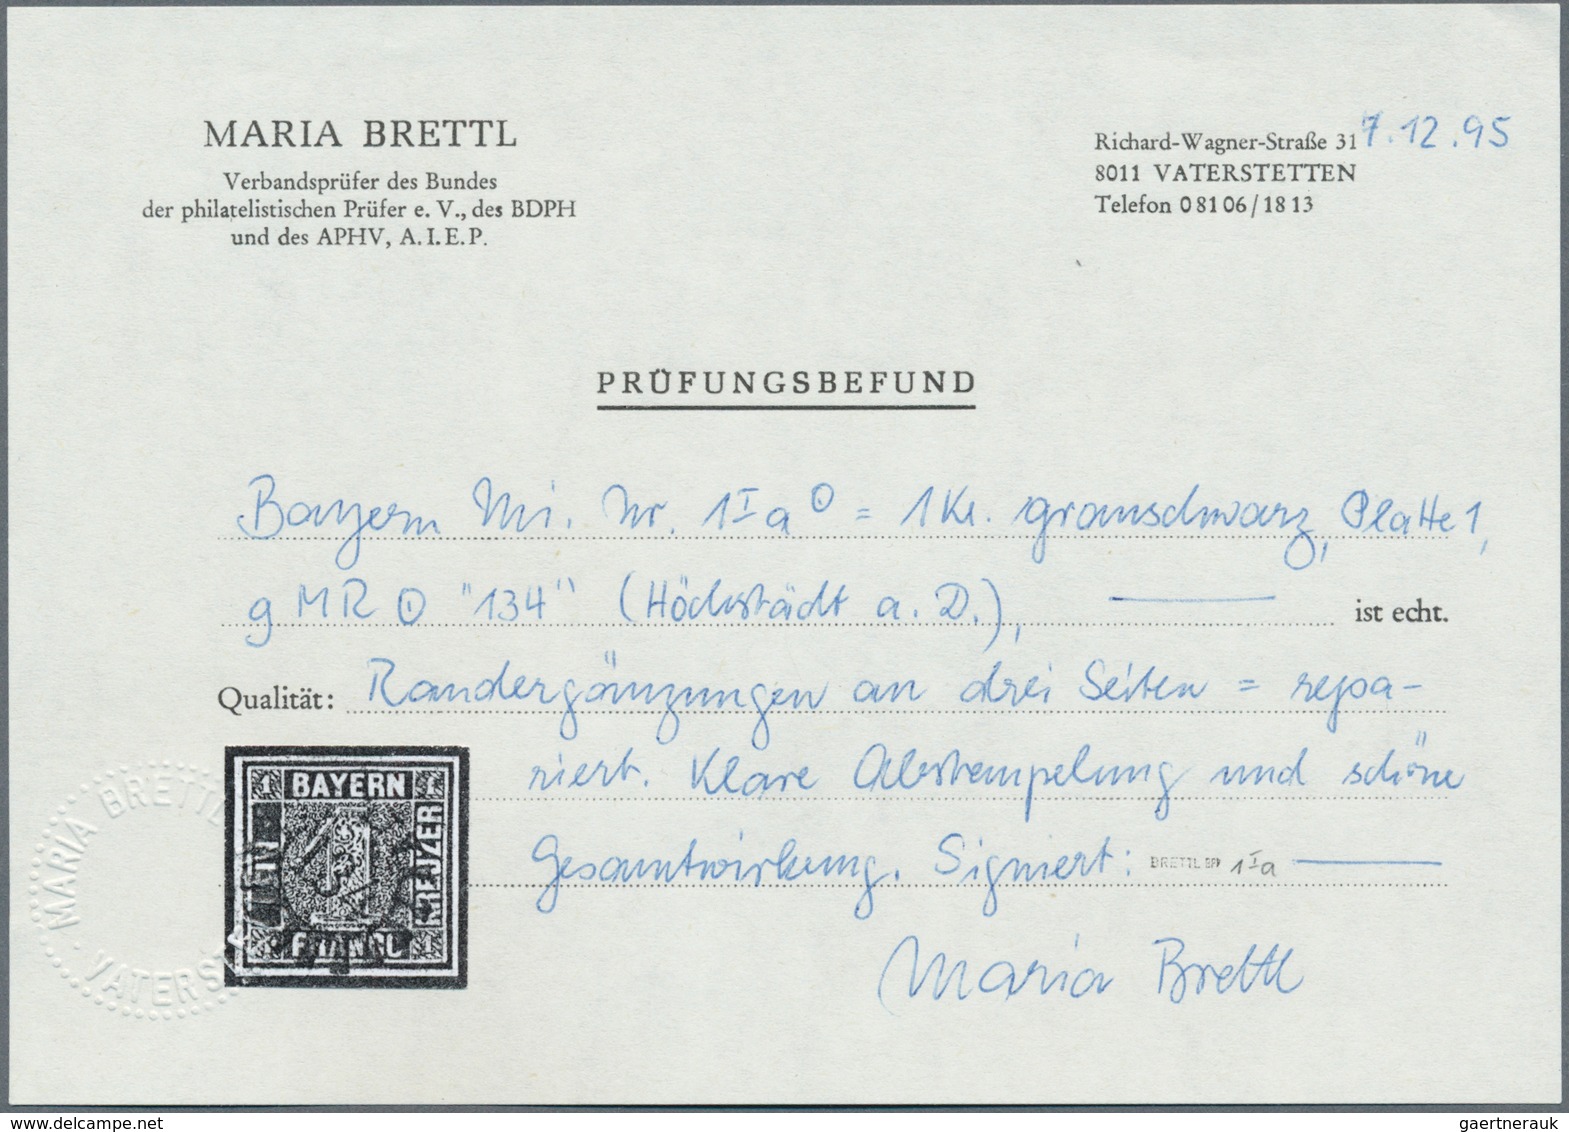 MARIA BRETTL
Verbandsprüfer des Bundes
der philatelistischen Prüfer e. V., des BDPH
und des APHV, A.I.E.P.
Richard-Wagner-Straße 31
7.12.95
8011 VATERSTETTEN
Telefon 08106/1813
PRÜFUNGSBEFUND
Bayern Mi. Nr. 1 I a ⊙ = 1 Kr. grauschwarz, Platte 1,
gMR ⊙ "134" (Höchstädt a. D.), ist echt.
Qualität: Randergänzungen an drei Seiten = repa-
riert. Klare Abstempelung und schöne
Gesamtwirkung. Signiert: BRETTL BPP 1 I a
Maria Brettl
MARIA BRETTL
VATERST
BAYERN
KREUZER
FRANCO
1
1
1
1
delcampe.net
gaertnerauk